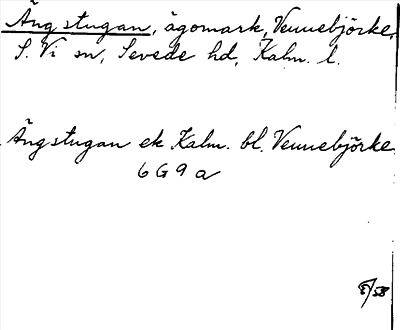 Ängstugan, ägomark, Vennebjörke,
S. Vi sn, Sevede hd, Kalm. l.
Ängstugan ek Kalm. bl. Vennebjörke
6 G 9 a
/58